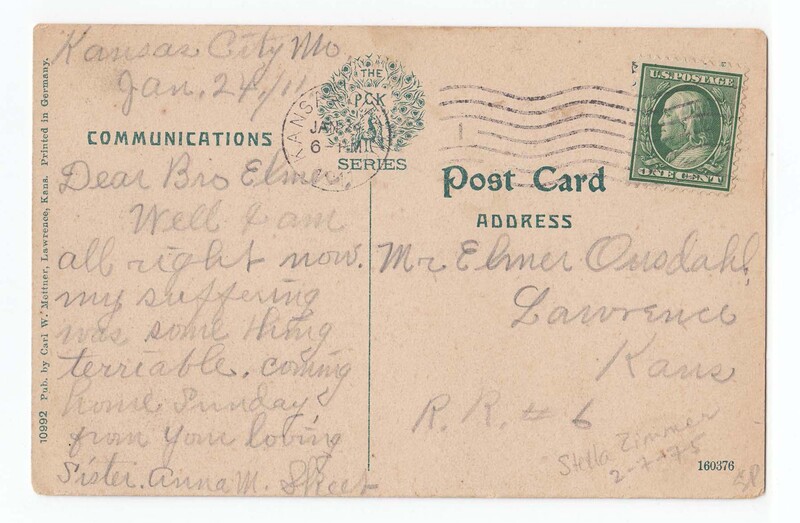 Kansas City Mo.
Jan. 24/11
COMMUNICATIONS
Dear Bro Elmer.
Well I am
all right now.
my suffering
was some thing
terriable. coming
home Sunday
from your loving
Sister. Anna M. Skeet
THE
PCK
SERIES
KANSAS
JAN 24
6 PM
U.S. POSTAGE
ONE CENT
Post Card
ADDRESS
Mr Elmer Ousdahl,
Lawrence
Kans
R. R. # 6
Stella Zimmer
2-7-75
160376
10992 Pub. by Carl W. Mettner, Lawrence, Kans. Printed in Germany.